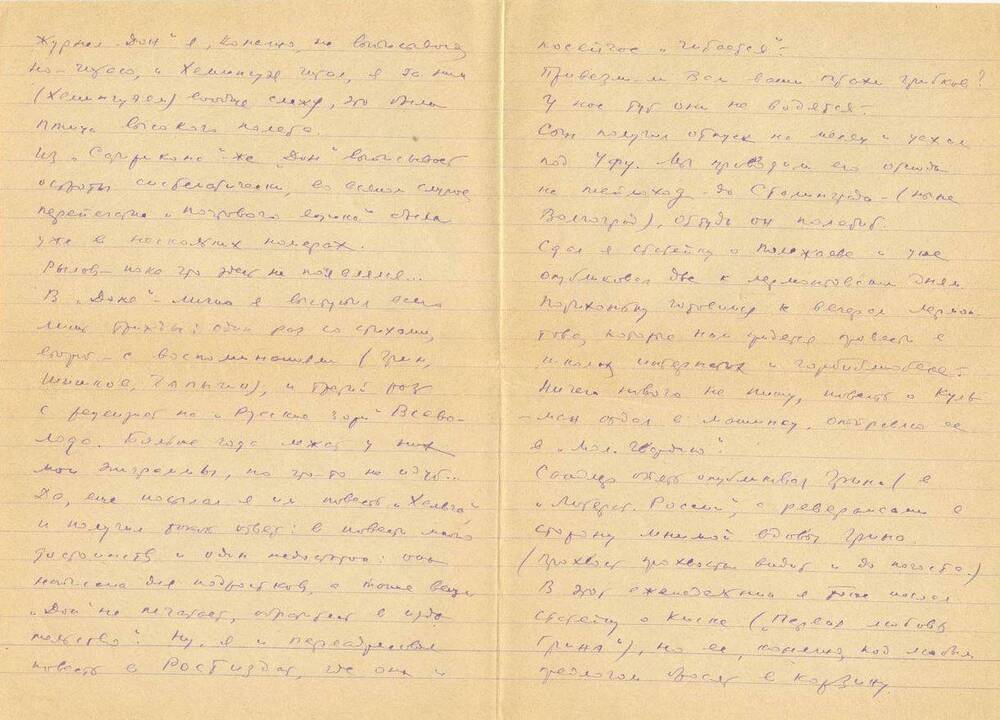 Журнал „Дон“ я, конечно, не выписываю,
но – читаю, и Хемингуэя читал, я за ним
(Хемингуэем) вообще слежу, это была
птица высокого полета.
Из „Сатирикона“ же „Дон“ выписывает
остроты систематически, во всяком случае
перепечатка и почтового ящика была
уже в нескольких номерах.
Рылов – пока что здесь не появлялся...
В „Доне“ – лично я выступил всего
лишь трижды: один раз со стихами,
второй – с воспоминаниями (Грин,
Шишков, Чапыгин), и третий раз
с рецензией на „Русские зори“ Всево-
лода. Больше года лежат у них
мои эпиграммы, но что-то не идут...
Да, еще посылал я им повесть „Хельга“,
и получил ответ: в повести много
достоинств и один недостаток: она
написана для подростков, а такие вещи
„Дон“ не печатает, обратитесь в изда-
тельство! Ну, я и переадресовал
повесть в Ростиздат, где она и
посейчас „читается“–
Привезли ли Вам ваши грибков?
У нас тут они не водятся –
Сын получил отпуск на месяц и уехал
под Уфу. Мы проводили его отсюда
на теплоход – до Сталинграда – (ныне
Волгоград), оттуда он полетит.
Сдал я статейку о Полежаеве и уже
опубликовал две к лермонтовским дням.
Потихоньку готовимся к вечерам Лермон-
това, которые нам придется провести в
школах интернатах и горбиблиотеке –
Ничего нового не пишу, повесть о Куль-
ман отдал в машинку, отправлю ее
в „Мол. Гвардию“.
Сандлер опять опубликовал Грина (в
„Литерат. России“, с реверансами в
сторону мнимой вдовы Грина.
(Прохвост прохвоста видит и до погоста.)
В этот еженедельник я тоже послал
статейку о Киске („Первая любовь
Грина“), но ее, конечно, под любым
предлогом бросят в корзину.